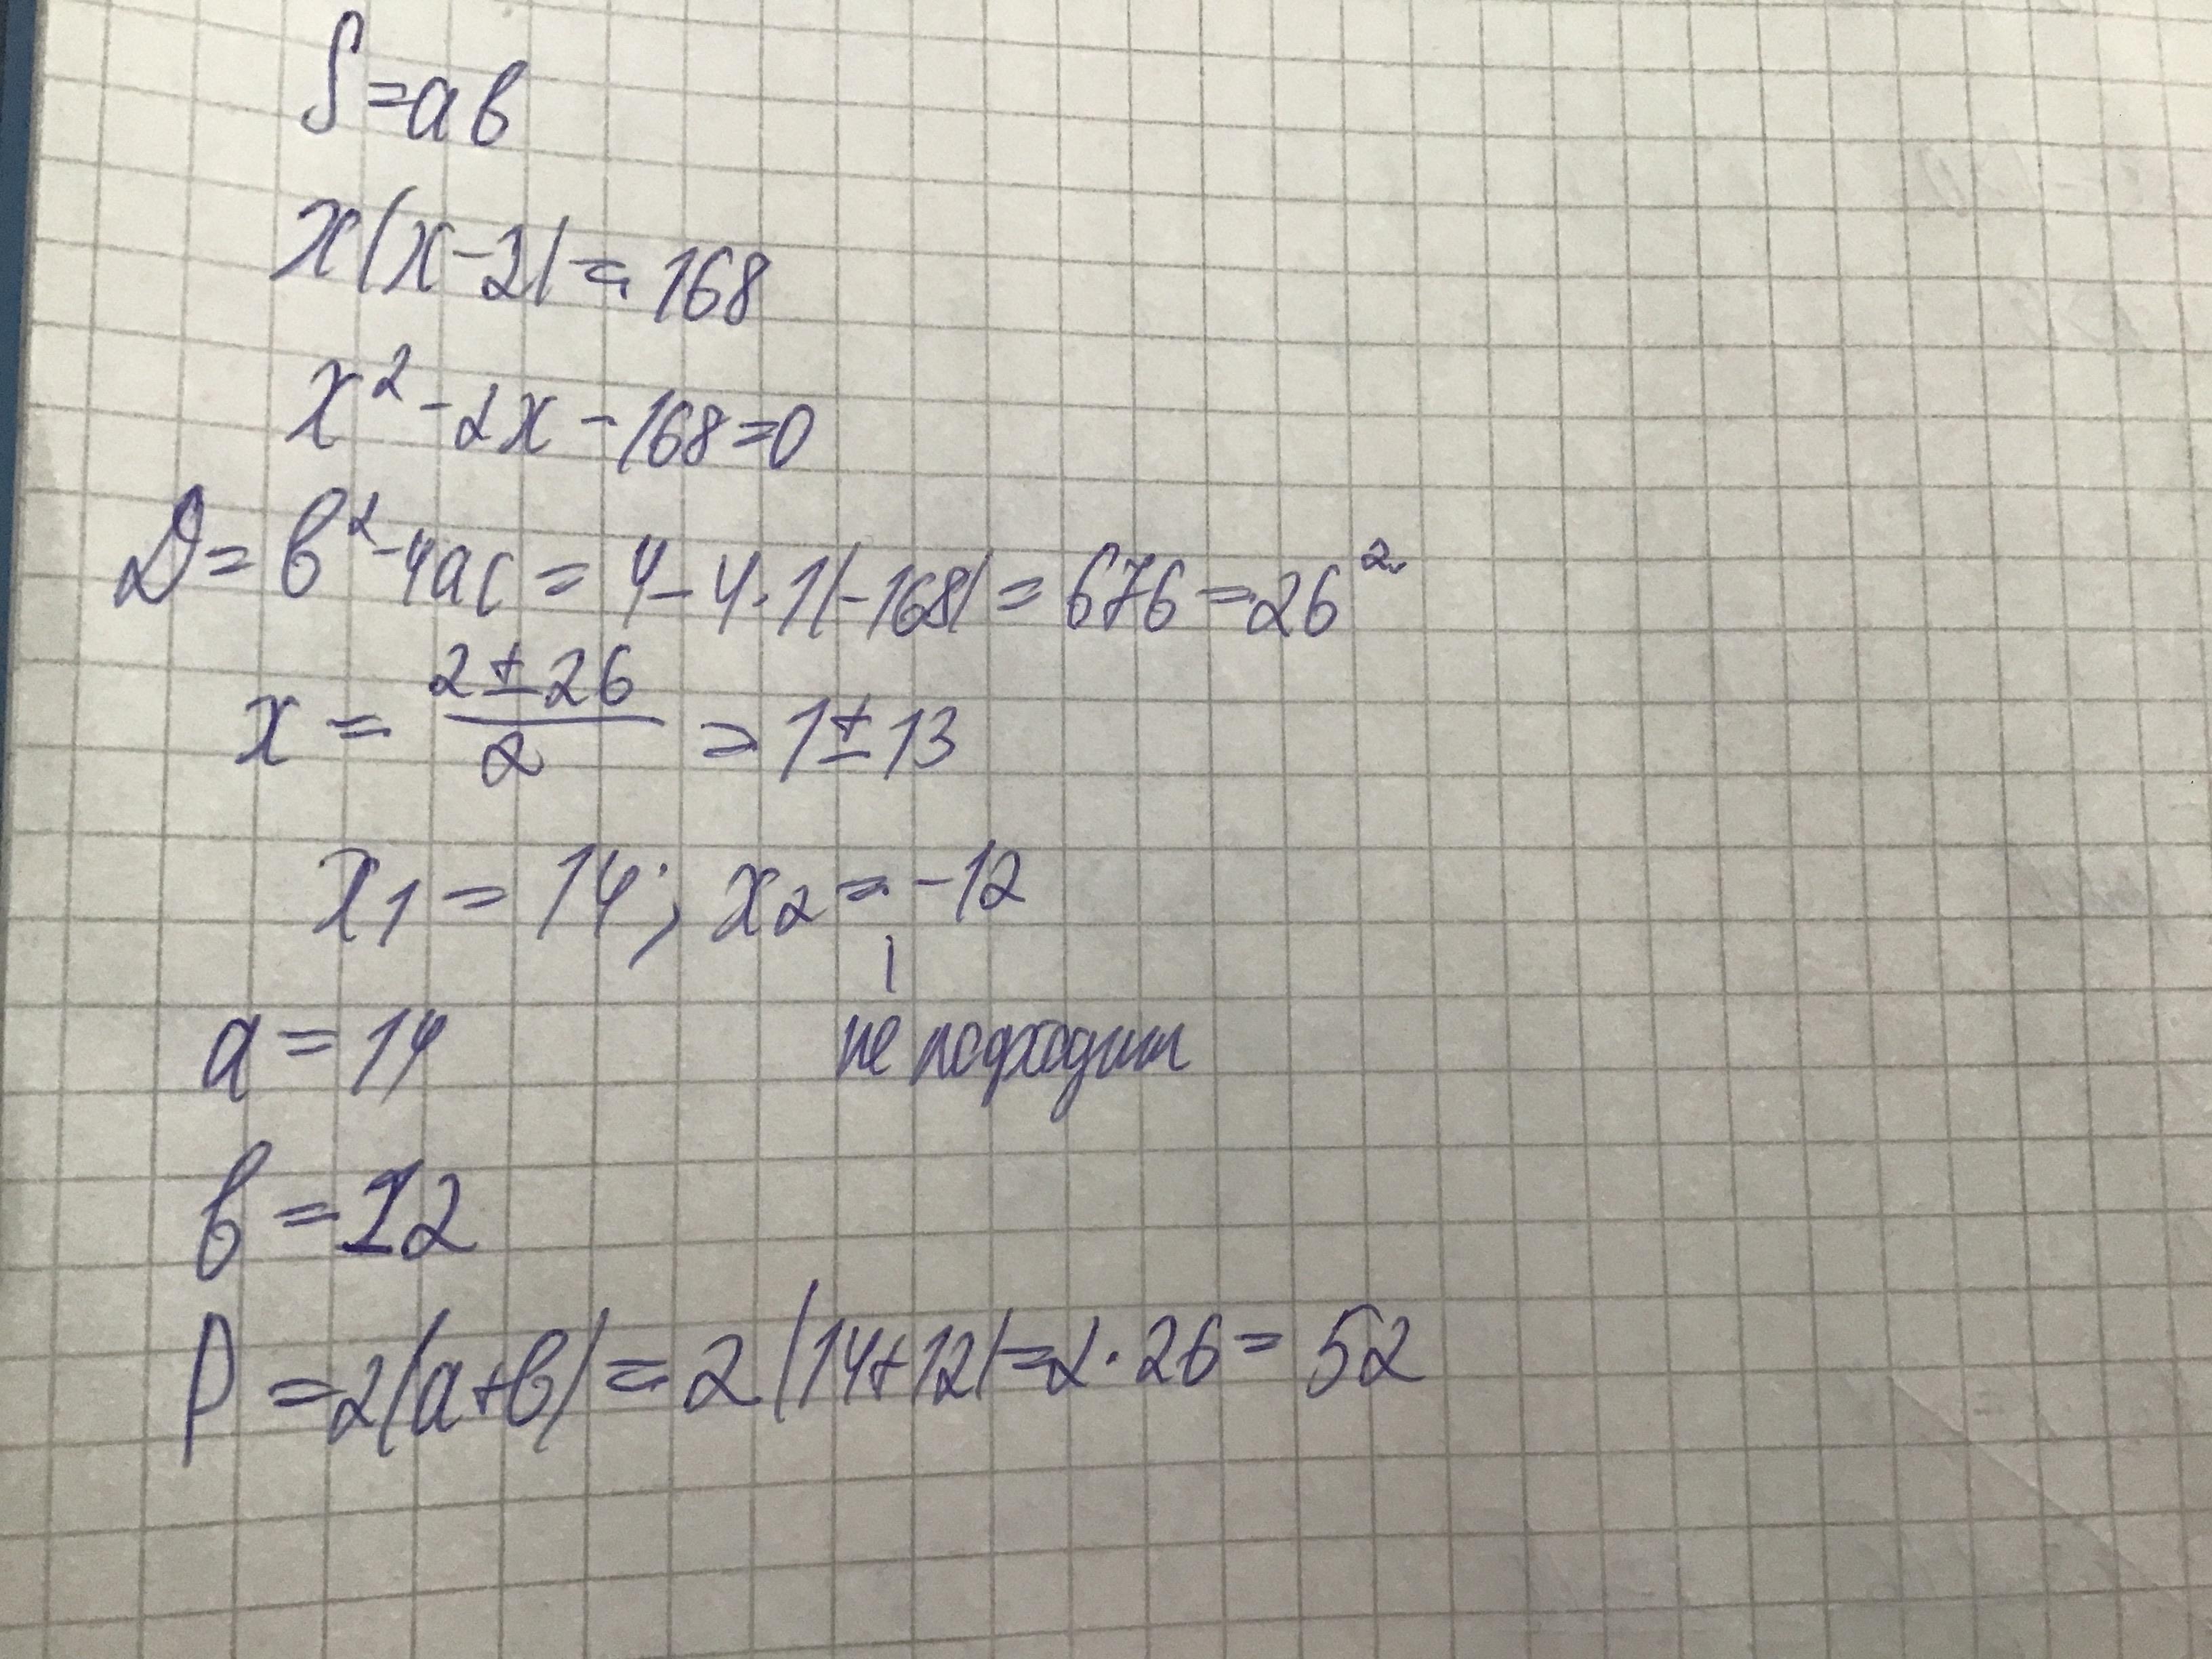 S=ab
x(x-2)=168
x²-2x-168=0
D=b²-4ac=4-4·1(-168)=676=26²
x=\frac{2±26}{2}=1±13
x₁=14; x₂=-12
a=14 не подходит
b=12
P=2(a+b)=2(14+12)=2·26=52